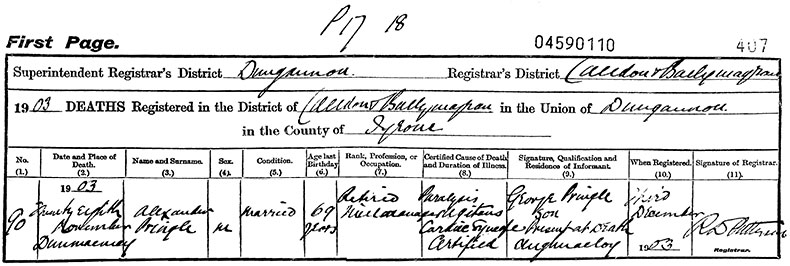 P 17 18
First Page. 04590110 407
Superintendent Registrar's District Dungannon. Registrar's District Caledon & Ballymagran
1903 DEATHS Registered in the District of Caledon & Ballymagran in the Union of Dungannon
in the County of Tyrone
No. (1.) Date and Place of Death. (2.) Name and Surname. (3.) Sex. (4.) Condition. (5.) Age last Birthday (6.) Rank, Profession, or Occupation. (7.) Certified Cause of Death and Duration of Illness. (8.) Signature, Qualification and Residence of Informant. (9.) When Registered. (10.) Signature of Registrar. (11.)
1903 Retired Paralysis George Pringle Third
90 Twenty Eighth Alexander married 69 Agitans Son December
November Pringle m years Cardiac Syncope Present at Death
Dunmacmay Certified Aughnacloy 1903 Registrar.